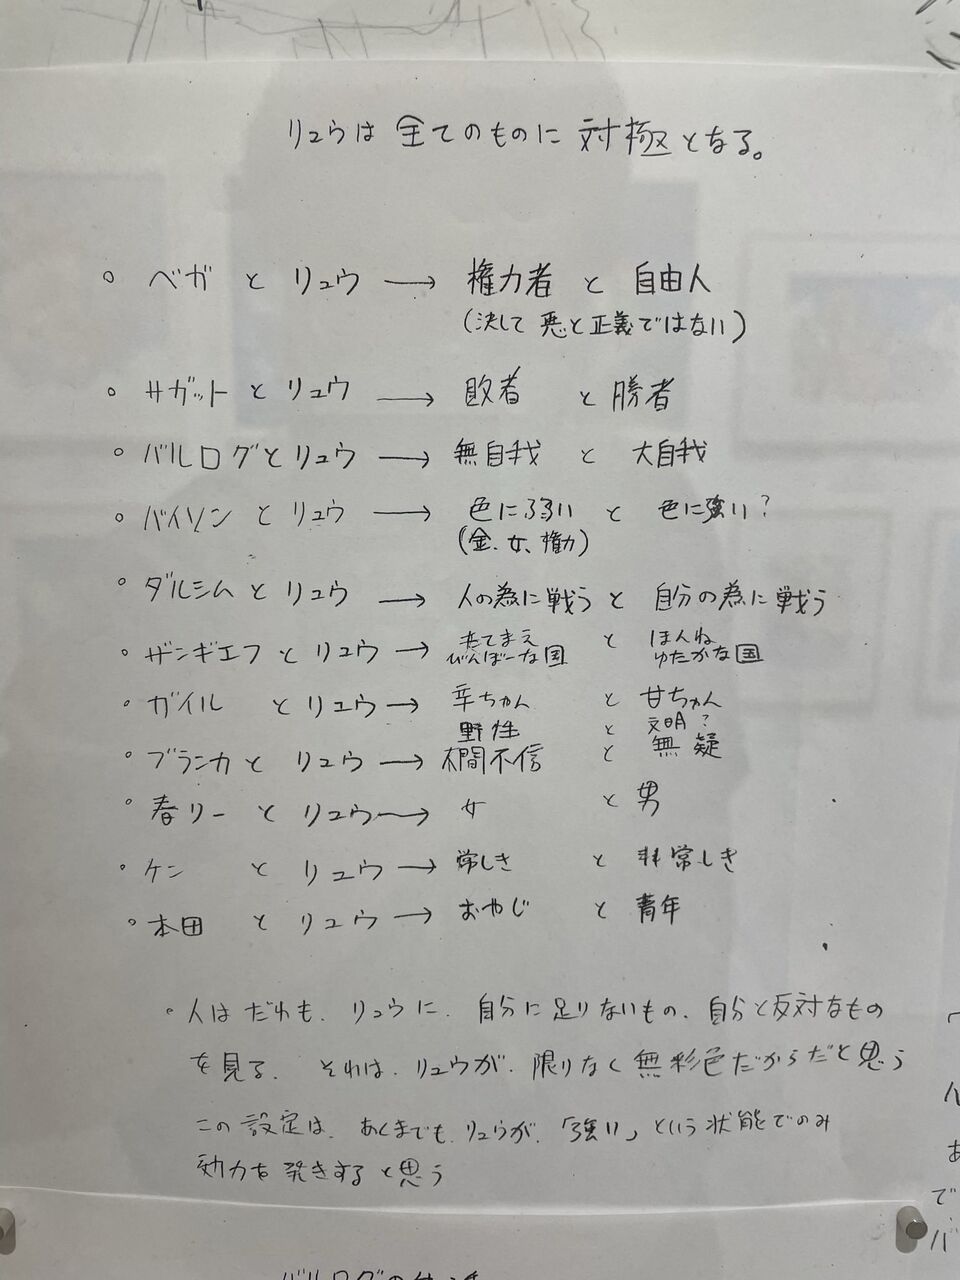 リュウは全てのものに対極となる。
。ベガとリュウ → 権力者と自由人
(決して悪と正義ではない)
。サガットとリュウ → 敗者と勝者
。バルログとリュウ → 無自我と大自我
。バイソンとリュウ → 色に弱いと色に強い?
(金、女、権力)
。ダルシムとリュウ → 人の為に戦うと自分の為に戦う
たてまえとほんね
。ザンギエフとリュウ →
びんぼーな国 ゆたかな国
。ガイルとリュウ → 辛ちゃんと甘ちゃん
野性と文明?
。ブランカとリュウ → 人間不信と無疑
。春リーとリュウ → 女と男
。ケンとリュウ → 常しきと非常しき
。本田とリュウ → おやじと青年
。人はだれも、リュウに、自分に足りないもの、自分と反対なもの
を見る、それは、リュウが、限りなく無彩色だからだと思う
この設定は、あくまでも、リュウが、「強い」という状態でのみ
効力を発きすると思う